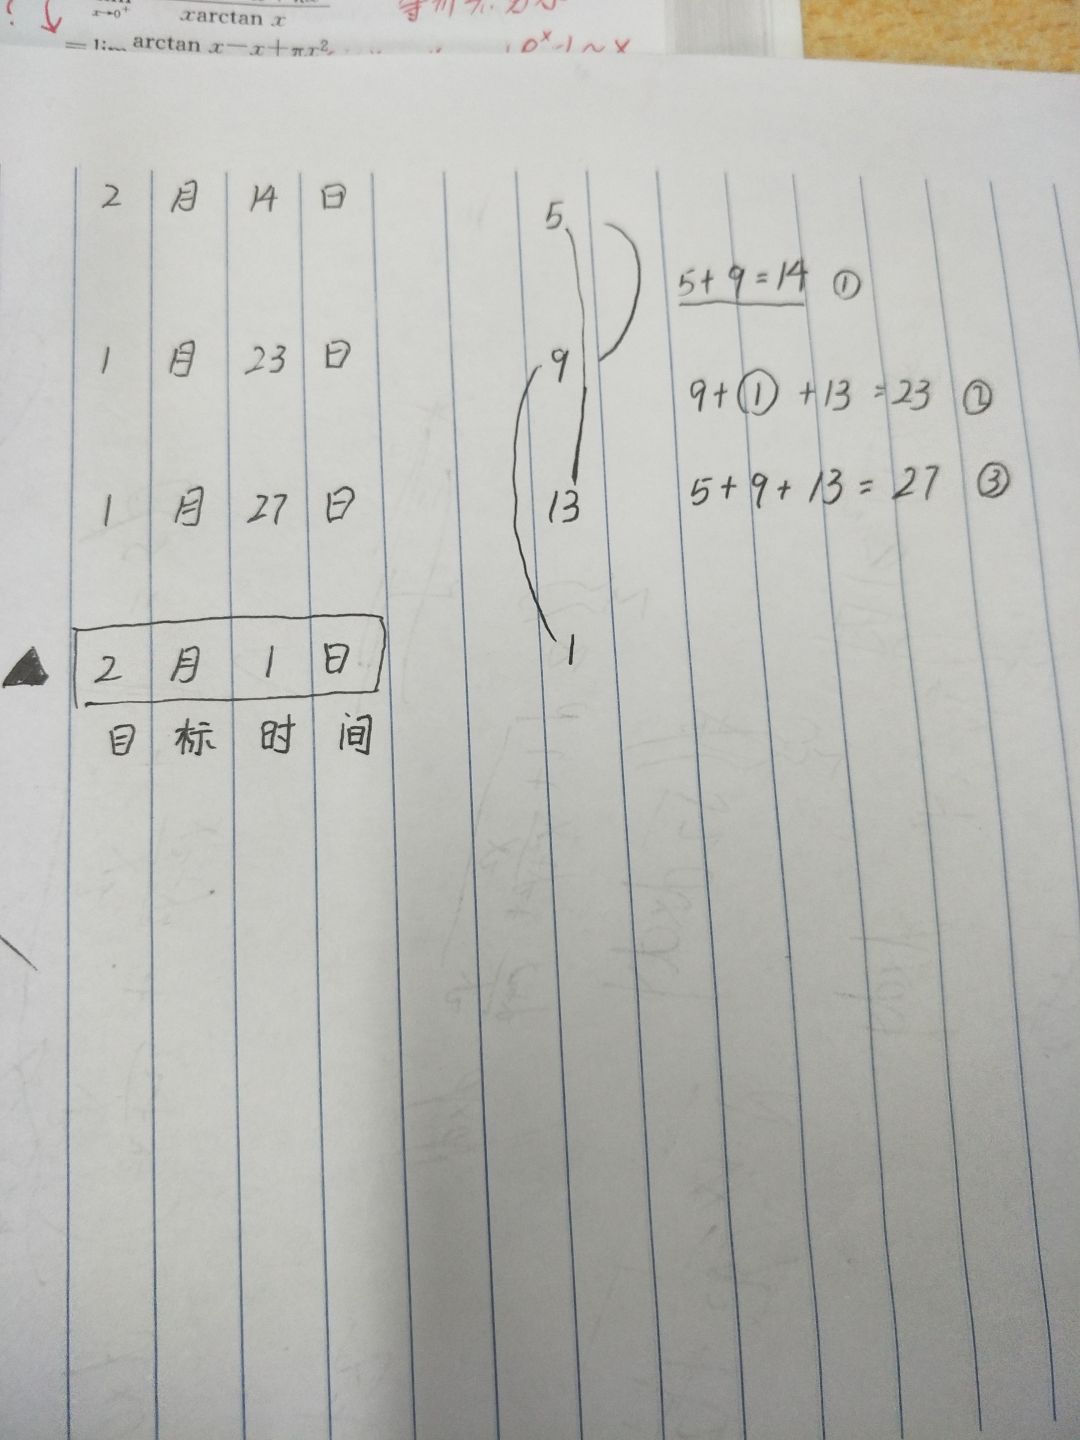 x→0⁺
xarctan x
= lim arctan x－x＋πx²
^x-1~x
2月14日
5
5+9=14 ①
1月23日
9
9+①+13=23 ②
1月27日
13
5+9+13=27 ③
2月1日
1
目标时间